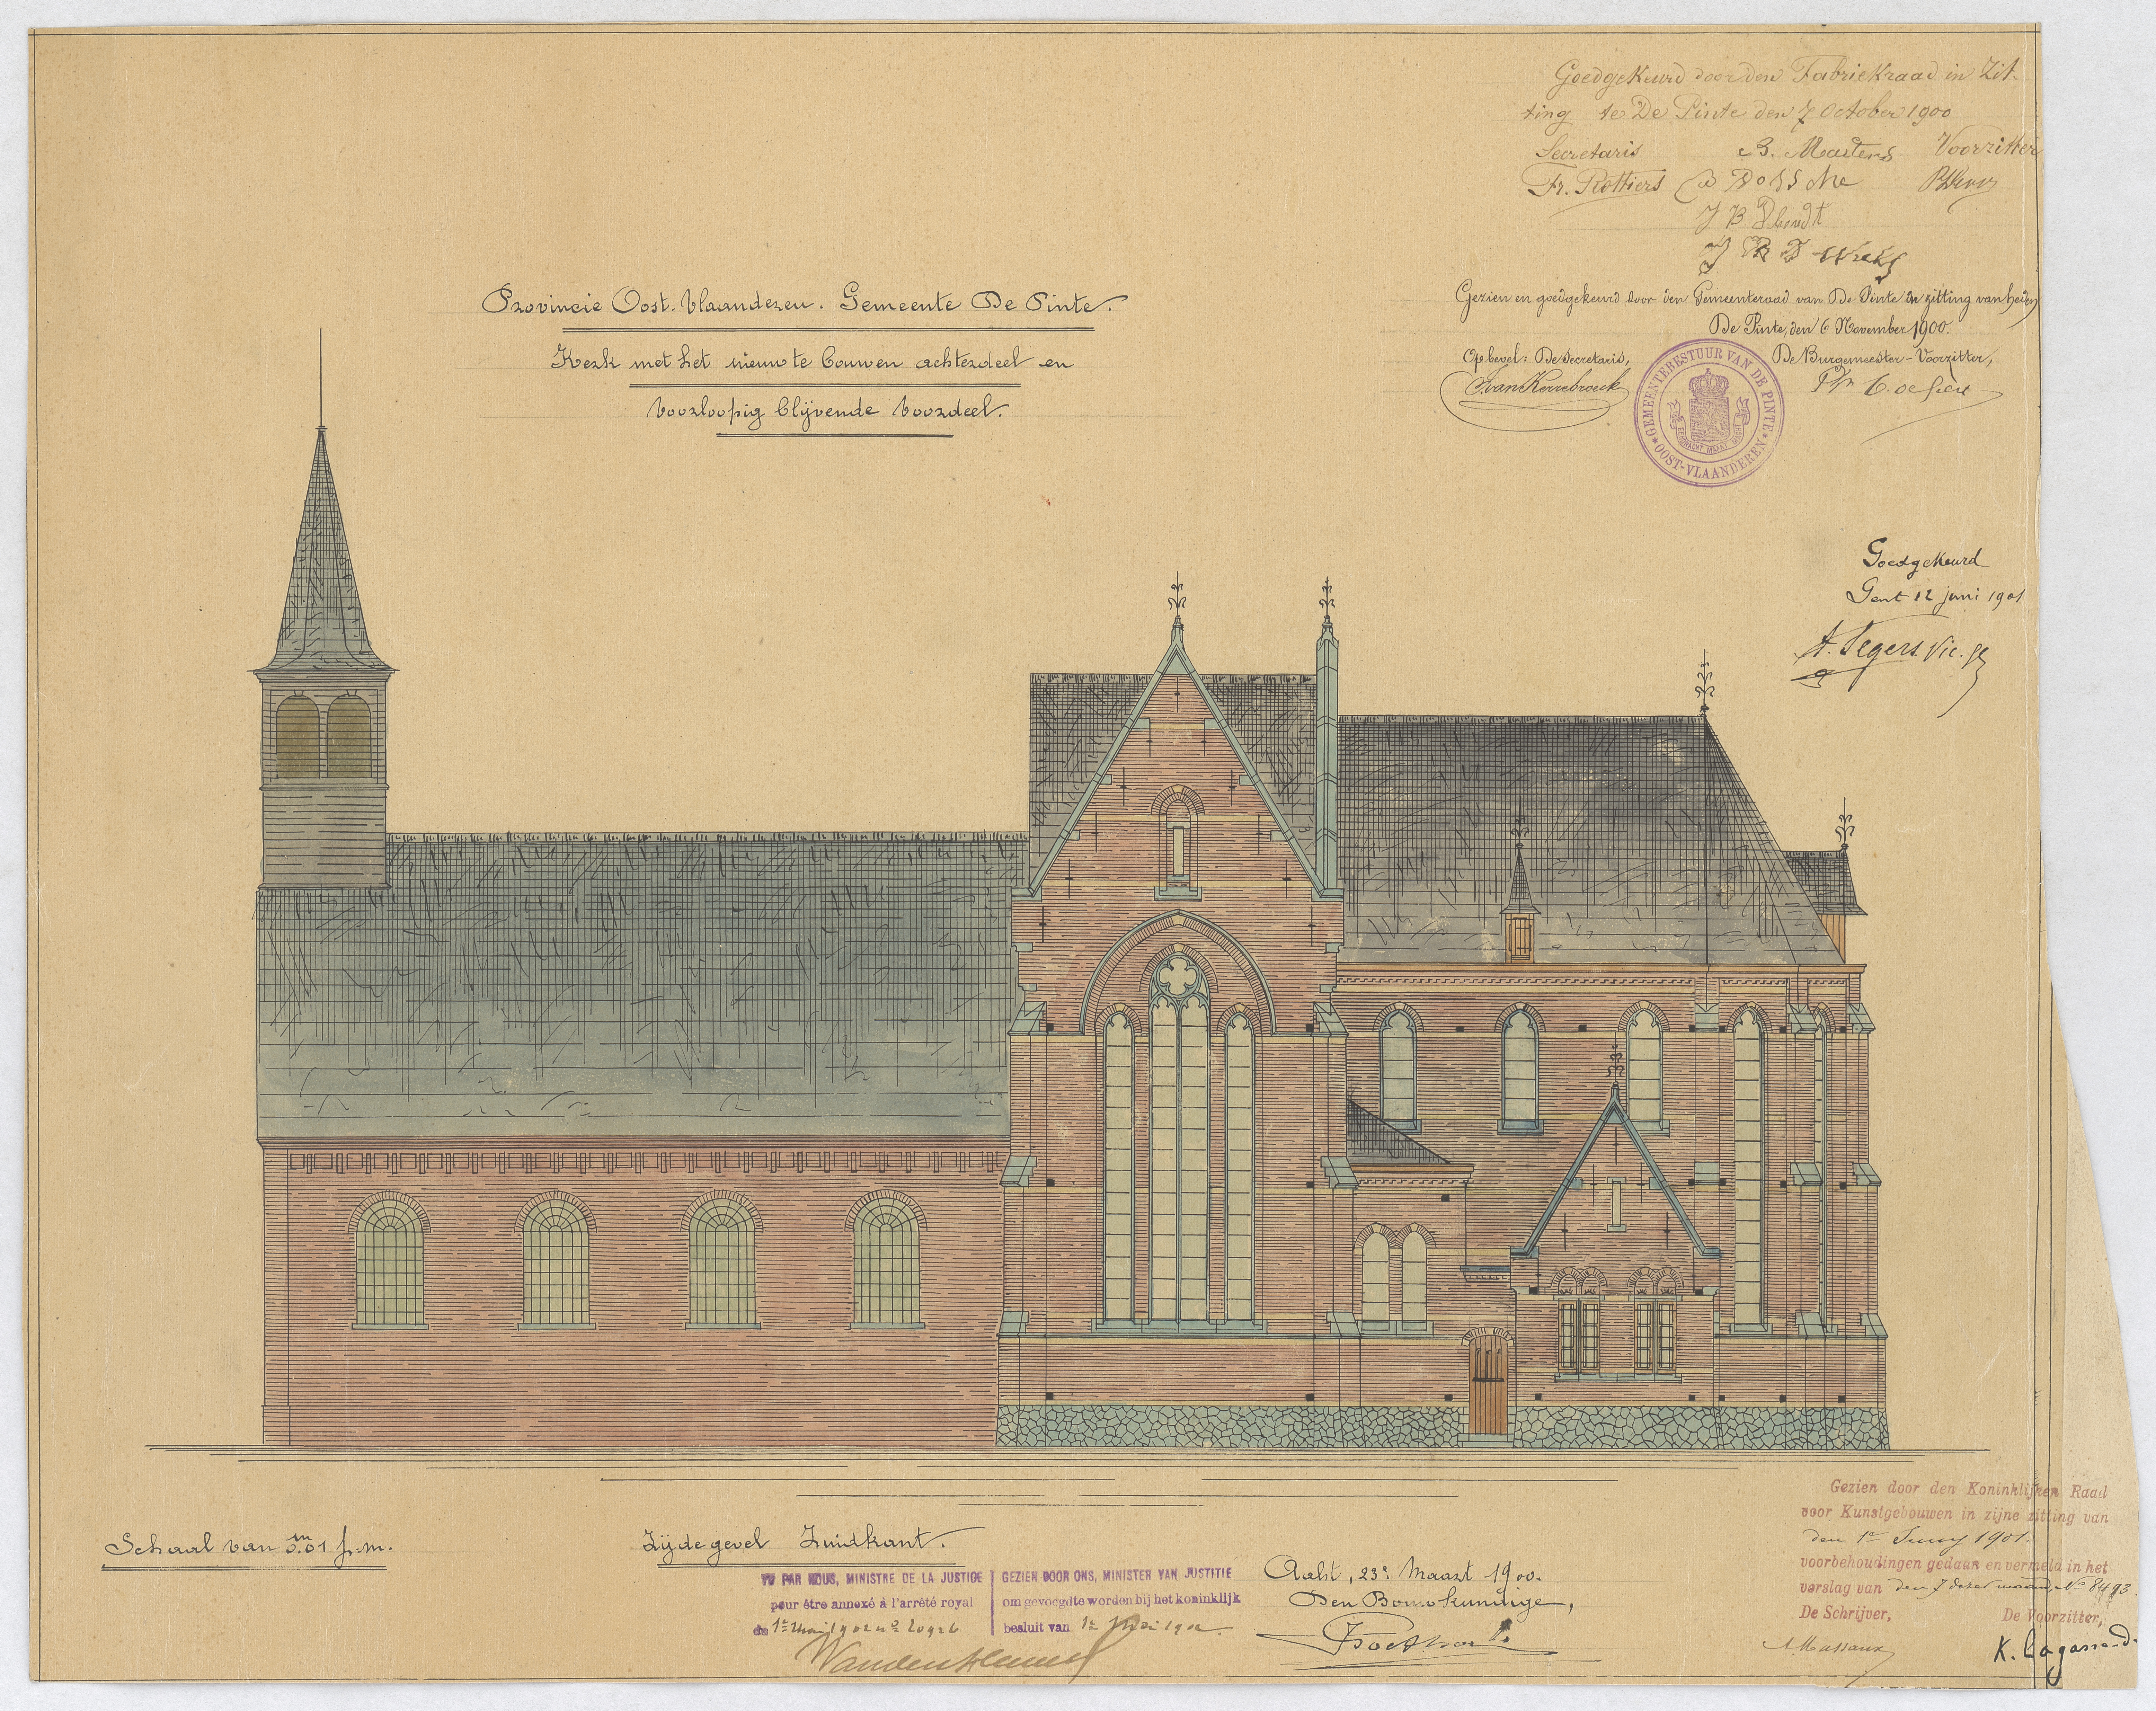 Goedgekeurd door den Fabriekraad in Zit-
ting te De Pinte den 7 October 1900
Secretaris B. Masters Voorzitter
Fr. Rottiers
J B
Gezien en goedgekeurd door den Gemeenteraad van De Pinte in zitting van heden
De Pinte, den 6 November 1900.
Op bevel: De Secretaris, De Burgemeester-Voorzitter,
VanKerrebroeck
GEMEENTEBESTUUR VAN DE PINTE
* OOST-VLAANDEREN *
Provincie Oost-Vlaanderen. Gemeente De Pinte.
Kerk met het nieuw te bouwen achterdeel en
voorloopig blijvende voordeel.
Goedgekeurd
Gent 12 juni 1901
A. Segers. Vic. g
Schaal van 0.01 m p. m.
Zijdegevel Zuidkant.
VU PAR NOUS, MINISTRE DE LA JUSTICE
pour être annexé à l'arrêté royal
du 1er Mai 1902 no 20926
GEZIEN DOOR ONS, MINISTER VAN JUSTITIE
om gevoegd te worden bij het koninklijk
besluit van 1n Mei 1902
Aalst, 23n Maart 1900.
Den Bouwkundige,
Gezien door den Koninklijken Raad
voor Kunstgebouwen in zijne zitting van
den 1en Juny 1901.
voorbehoudingen gedaan en vermeld in het
verslag van den 7 dezer maand, No 8493.
De Schrijver, De Voorzitter,
A. Massaux K. Lagasse-d